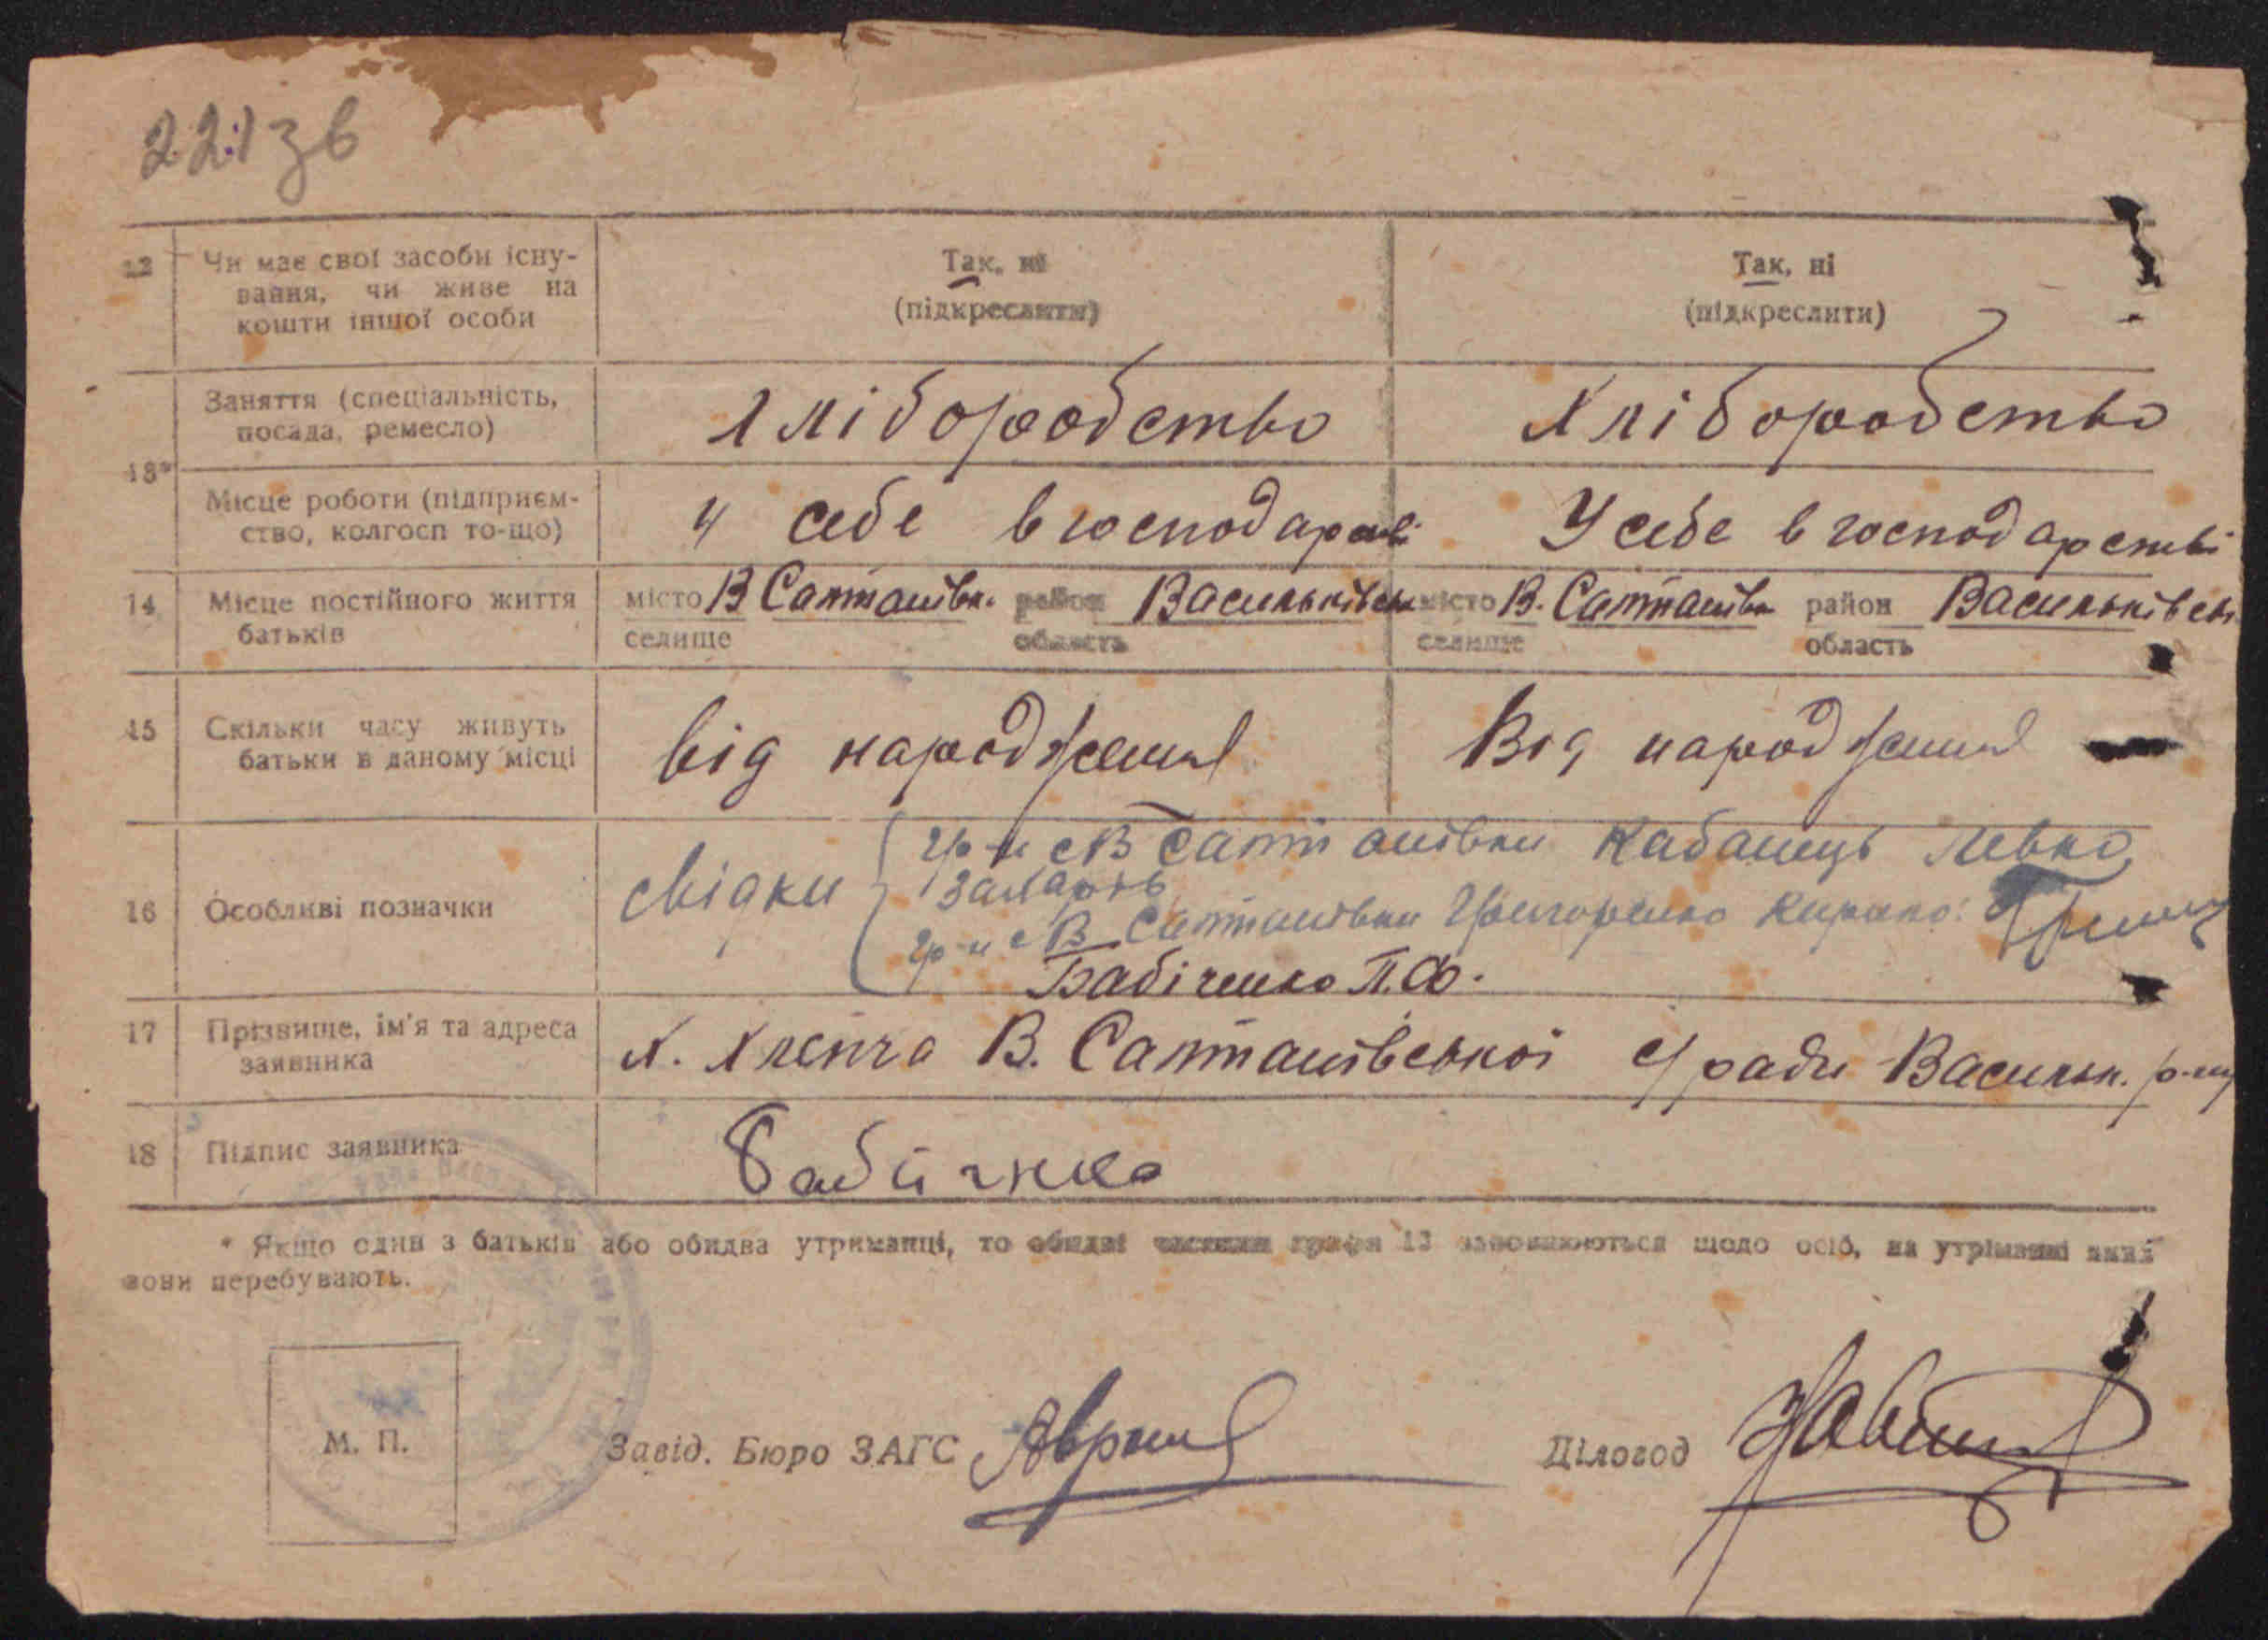 221 зв
12 Чи має свої засоби існу-
вання, чи живе на
кошти іншої особи
Так, ні
(підкреслити)
Так, ні
(підкреслити)
13*
Заняття (спеціальність,
посада, ремесло)
Хліборобство
Хліборобство
Місце роботи (підприєм-
ство, колгосп то-що)
у себе в господарстві
У себе в господарстві
14 Місце постійного життя
батьків
місто В Салтанівк. район Васильківськ
селище область
місто В. Салтанівк район Васильківськ
селище область
15 Скільки часу живуть
батьки в даному місці
від народження
Від народження
16 Особливі позначки
свідки
гр-н с В Салтанівки Кабанець Левко
Захарів
гр-н с В Салтанівки Григоренко Кирило
Бабіченко П.Ф.
17 Прізвище, ім'я та адреса
заявника
х. Хлепча В. Салтанівської с/ради Васильк. р-ну
18 Підпис заявника
* Якщо один з батьків або обидва утриманці, то обидві частини графи 13 заповнюються щодо осіб, на утриманні яких
вони перебувають.
М. П.
Завід. Бюро ЗАГС
Діловод